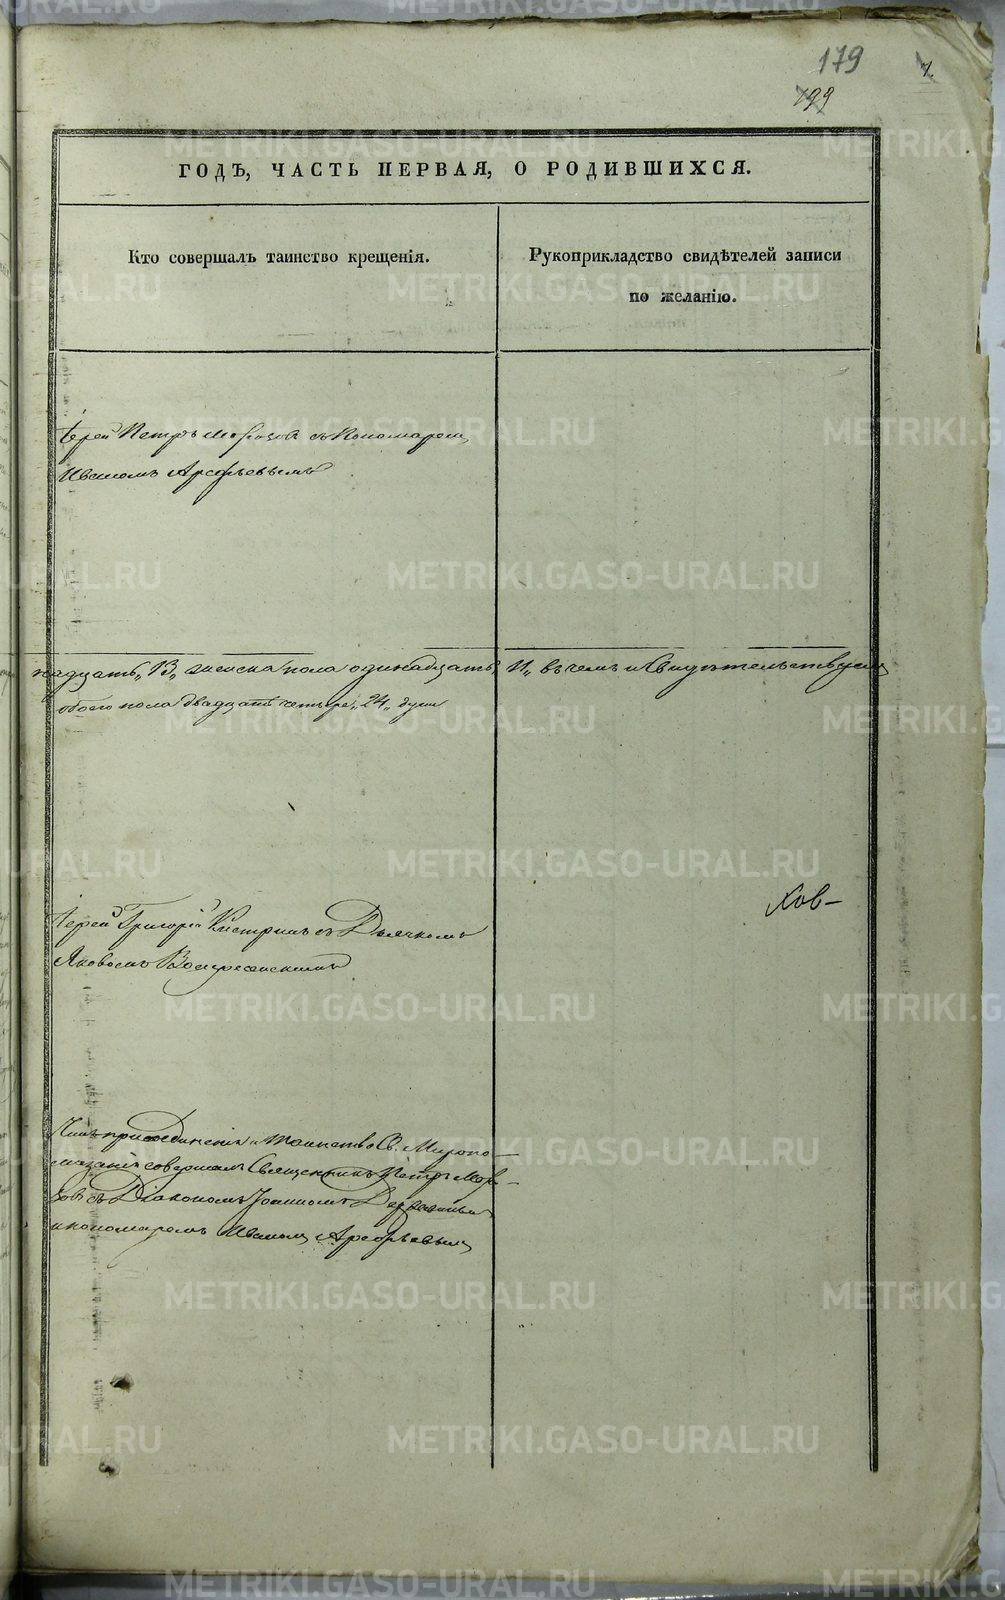 179
199
7.
ГОДѢ, ЧАСТЬ ПЕРВАЯ, О РОДИВШИХСЯ.
Кто совершалъ таинство крещенія.
Рукоприкладство свидѣтелей записи
по желанію.
Іерей Петръ Морозовъ съ Пономаремъ
Иваномъ Арефьевымъ
надцать „13„ женска пола одинадцать „11„ въ чемъ и свидѣтельствуемъ
обоего пола двадцать четыре „24„ души
Хов-
Іерей Григорій съ Дьячкомъ
Яковомъ Воскресенскимъ
Чинъ присоединенія и таинство Св. Миропо-
мазанія совершалъ Священникъ Петръ Моро-
зовъ съ Діакономъ Іоанномъ
и пономаремъ Иваномъ Арефьевымъ
METRIKI.GASO-URAL.RU